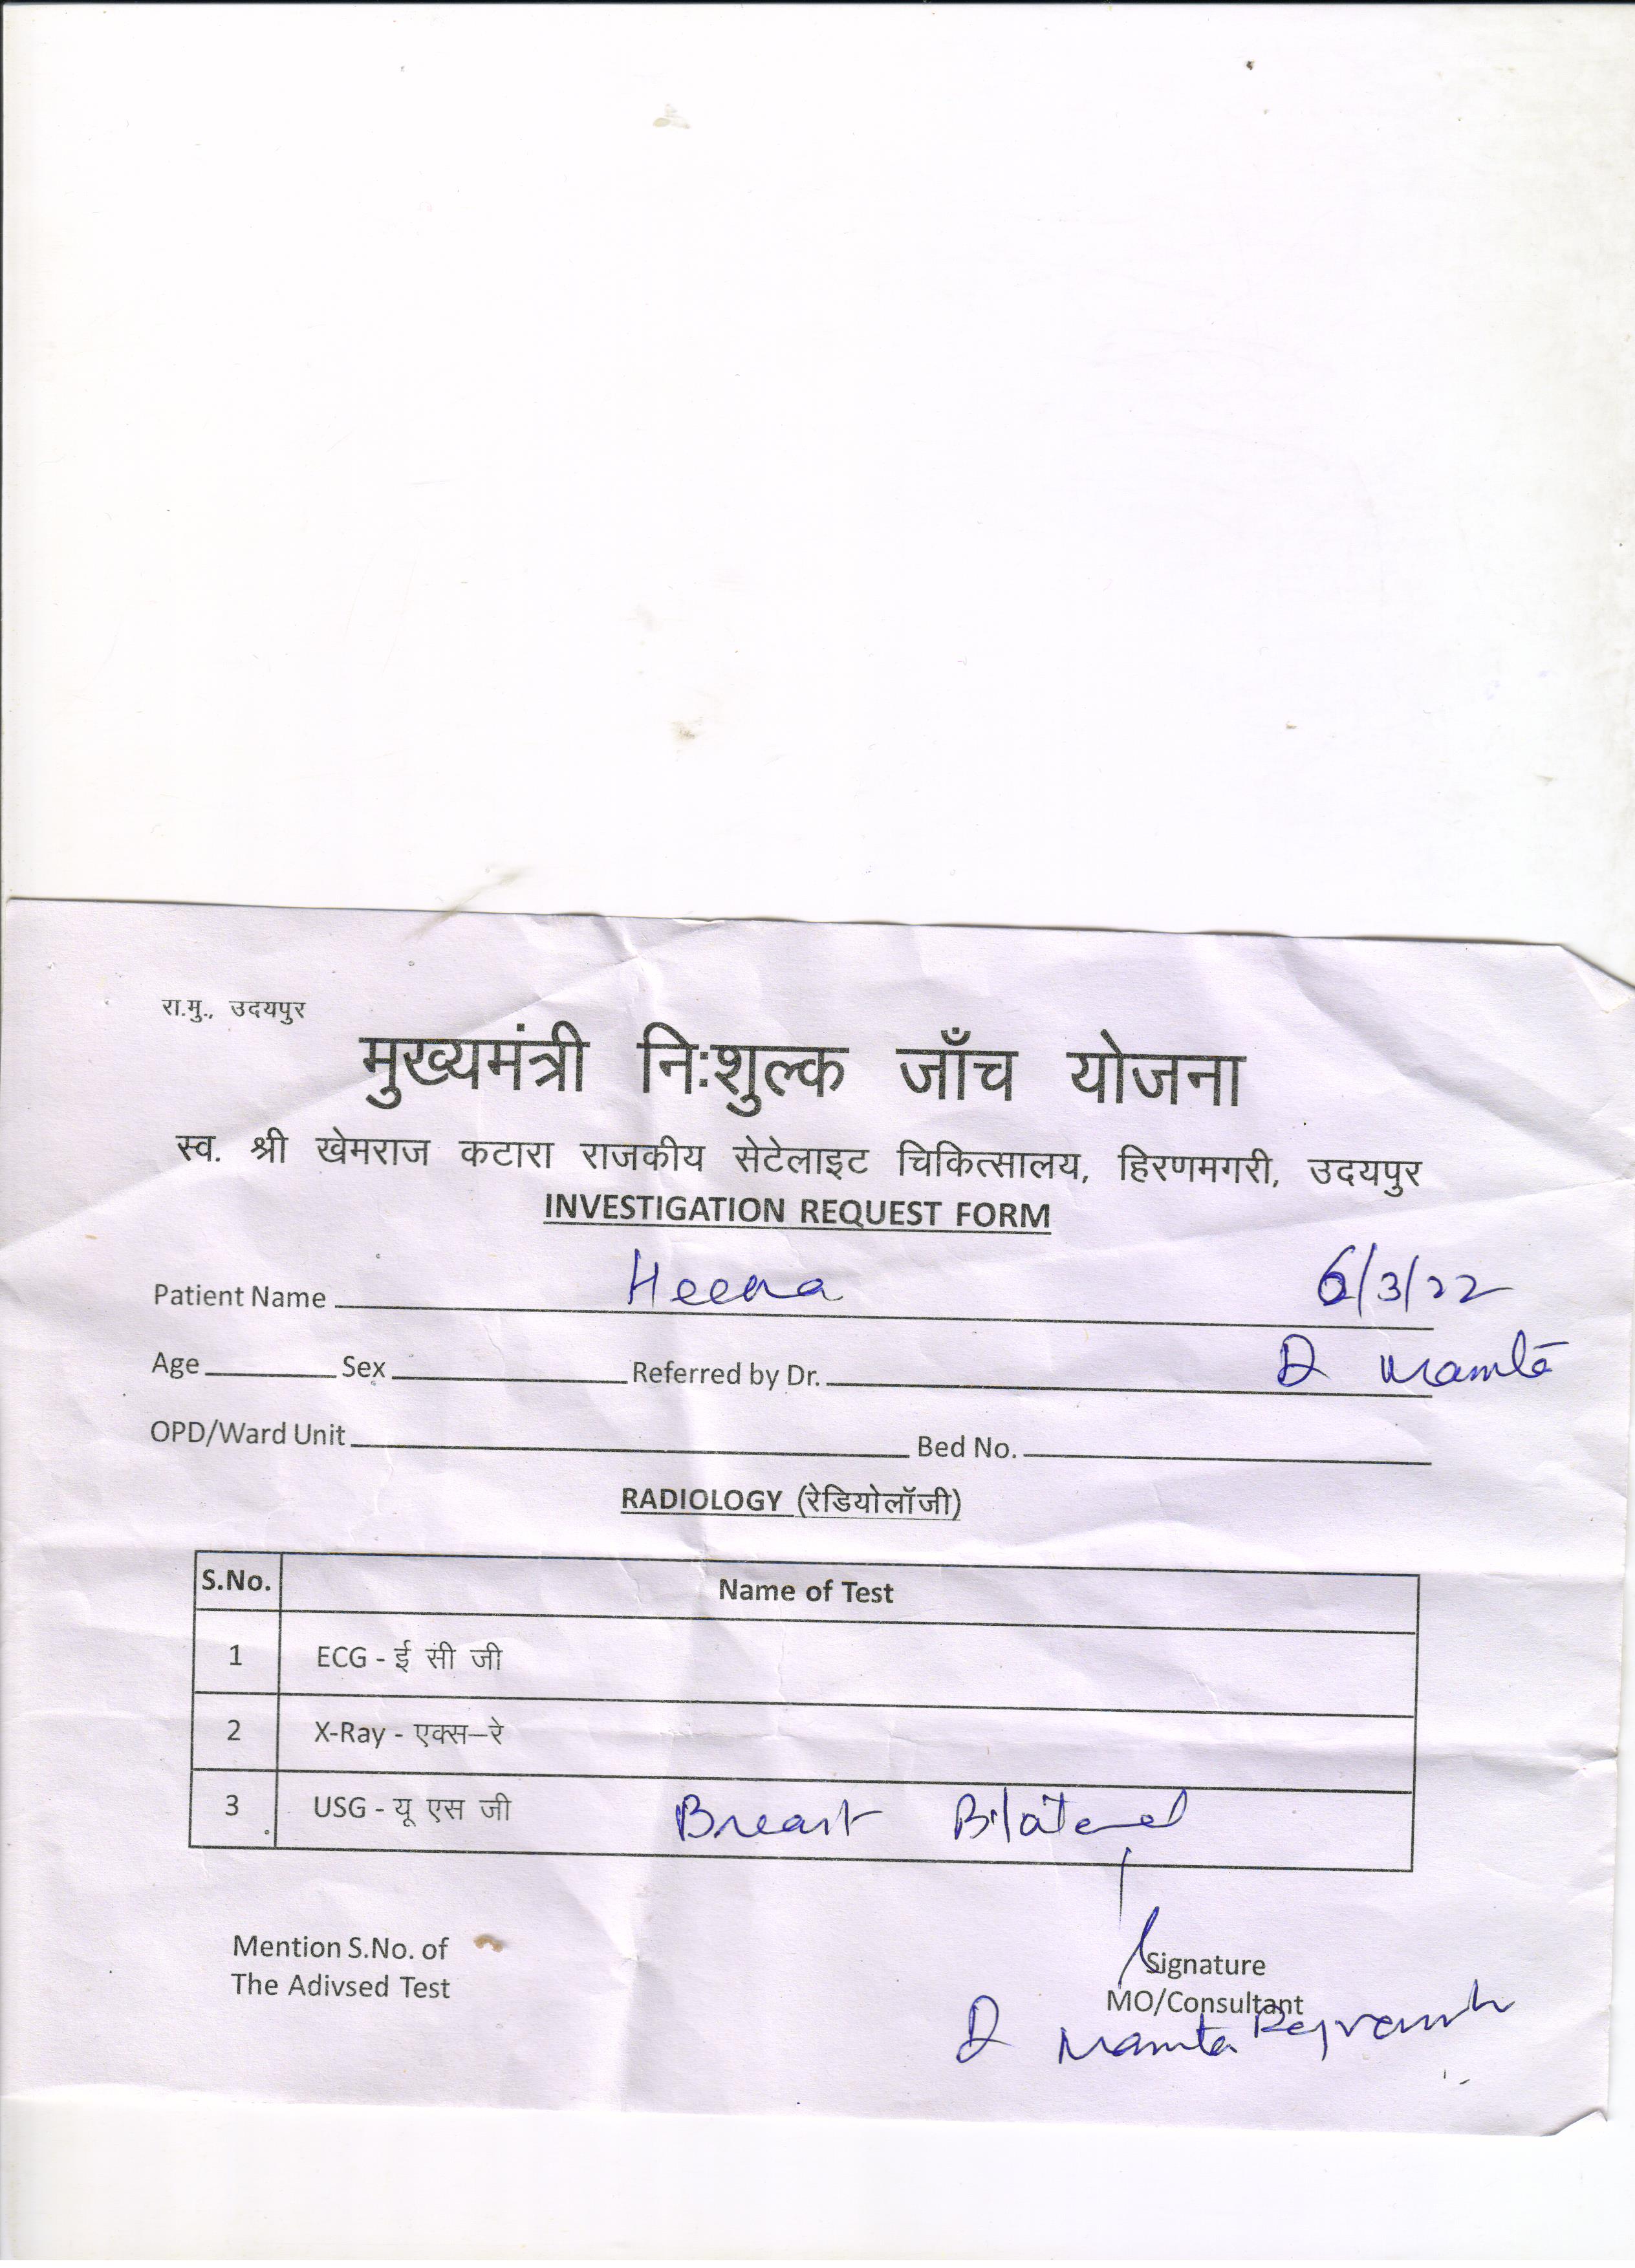 रा.मु., उदयपुर
मुख्यमंत्री निःशुल्क जाँच योजना
स्व. श्री खेमराज कटारा राजकीय सेटेलाइट चिकित्सालय, हिरणमगरी, उदयपुर
INVESTIGATION REQUEST FORM
Patient Name Heena 6/3/22
Age Sex Referred by Dr. D Mamta
OPD/Ward Unit Bed No.
RADIOLOGY (रेडियोलॉजी)
S.No. Name of Test
1 ECG - ई सी जी
2 X-Ray - एक्स–रे
3 USG - यू एस जी Breast Bilateral
Mention S.No. of
The Adivsed Test
Signature
MO/Consultant
D Mamta